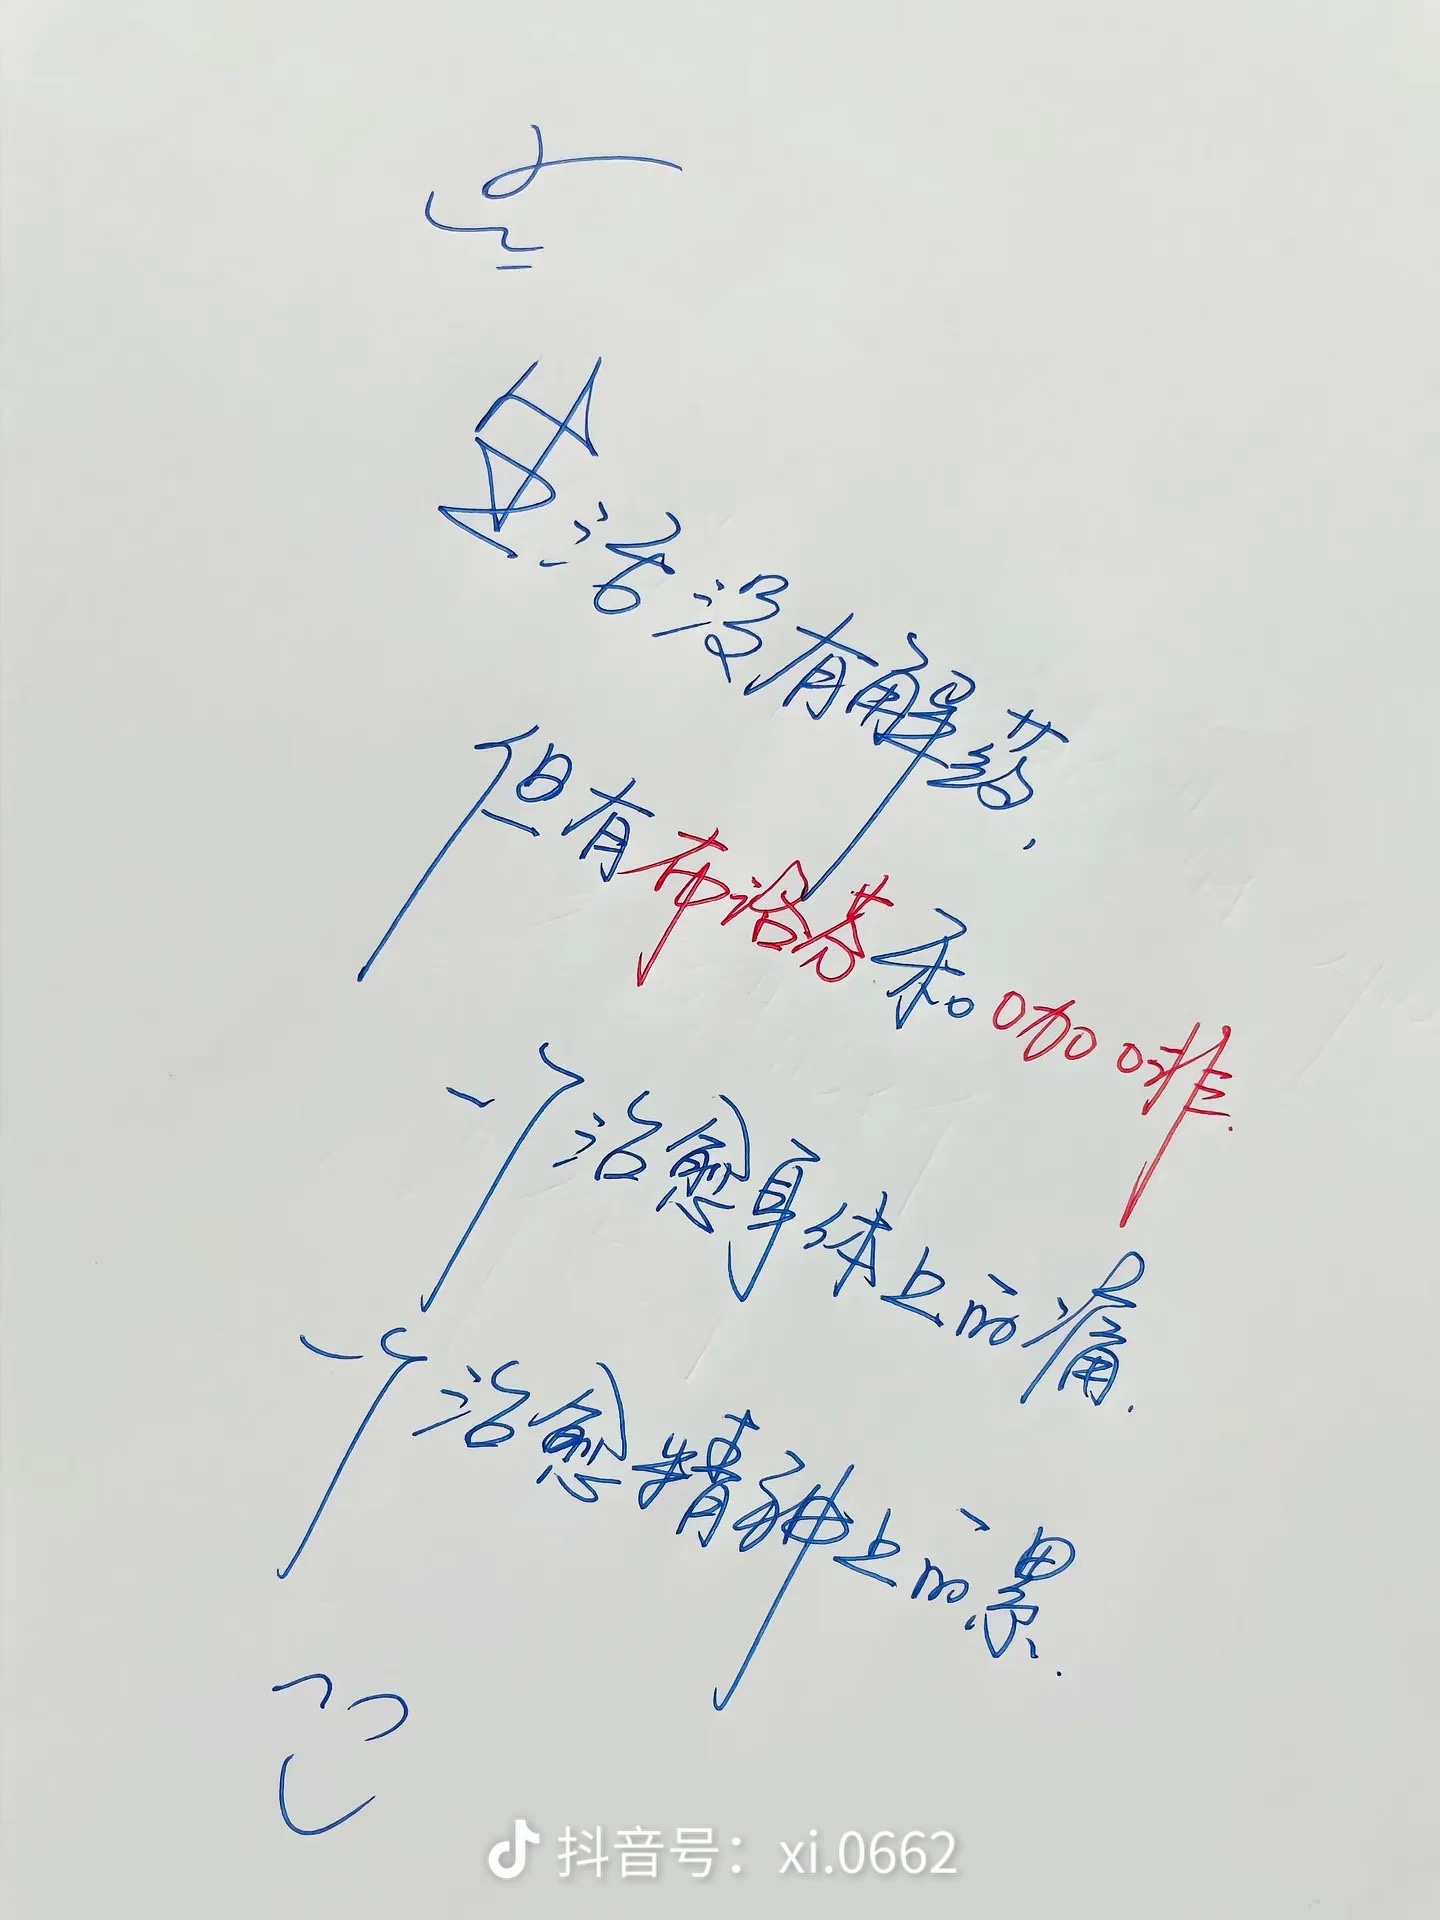 生活没有解药,
但有布洛芬和咖啡.
一个治愈身体上的痛.
一个治愈精神上的累.
抖音号：xi.0662